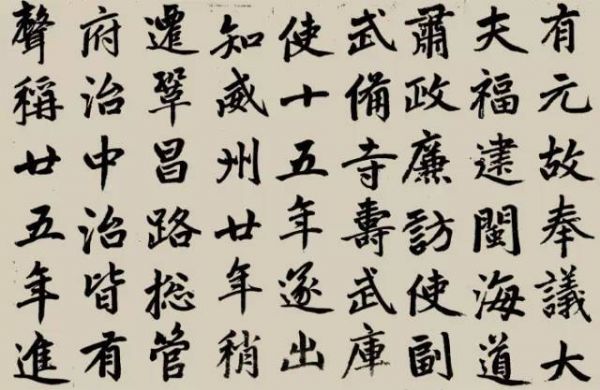 有元故奉議大
夫福建閩海道
肅政廉訪使副
武備寺壽武庫
使十五年遂出
知威州廿年稍
遷鞏昌路捴管
府治中治皆有
聲稱廿五年進